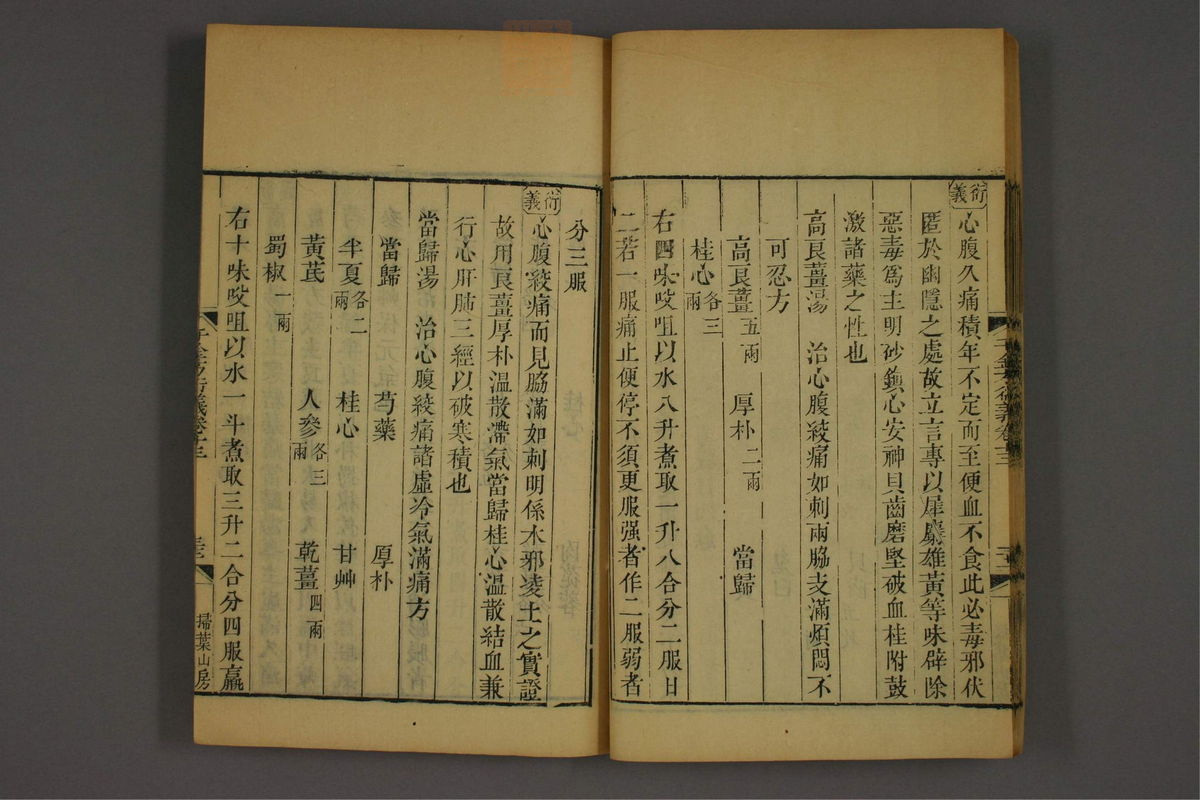 衍義
心腹久痛積年不定而至便血不食此必毒邪伏
匿於幽隱之處故立言專以犀麝雄黃等味辟除
惡毒爲主明砂鎮心安神貝齒磨堅破血桂附鼓
激諸藥之性也
高良薑湯 治心腹絞痛如刺兩脇支滿煩悶不
可忍方
高良薑五兩 厚朴二兩 當歸
桂心各三兩
右四味㕮咀以水八升煮取一升八合分二服日
二若一服痛止便停不須更服强者作二服弱者
分三服
衍義
心腹絞痛而見脇滿如刺明係木邪凌土之實證
故用良薑厚朴溫散滯氣當歸桂心溫散結血兼
行心肝肺三經以破寒積也
當歸湯 治心腹絞痛諸虛冷氣滿痛方
當歸 芍藥 厚朴
半夏各二兩 桂心 甘艸
黃芪 人參各三兩 乾薑四兩
蜀椒一兩
右十味㕮咀以水一斗煮取三升二合分四服羸
千金方衍義卷十三
掃葉山房